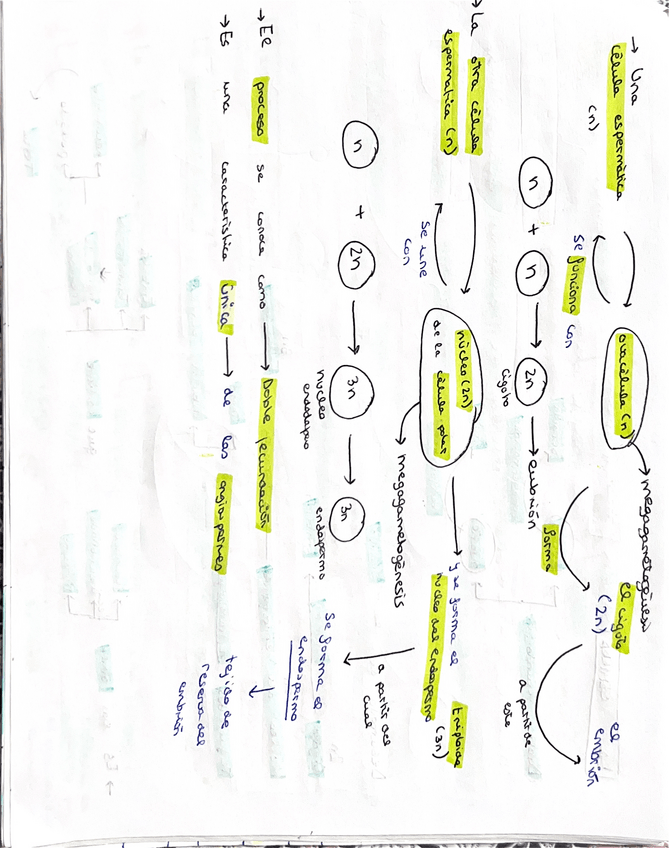 → Una
célula espermática
(n)
se funciona con
ovocélula (n)
→ megagametogénesis
forma
el cigoto
(2n)
a partir de
este
el
embrión
n + n → 2n → embrión
cigoto
→ La otra célula
espermática (n)
se une
con
núcleo (2n)
de la célula polar
→ megagametogénesis
y se forma el
núcleo del endospermo
triploide
(3n)
a partir del
cual
se forma el
endospermo
tejido de
reserva del
embrión
n + 2n → 3n → 3n
núcleo
endospermo
→ El proceso se conoce como → Doble fecundación
→ Es una característica única → de las angiospermas